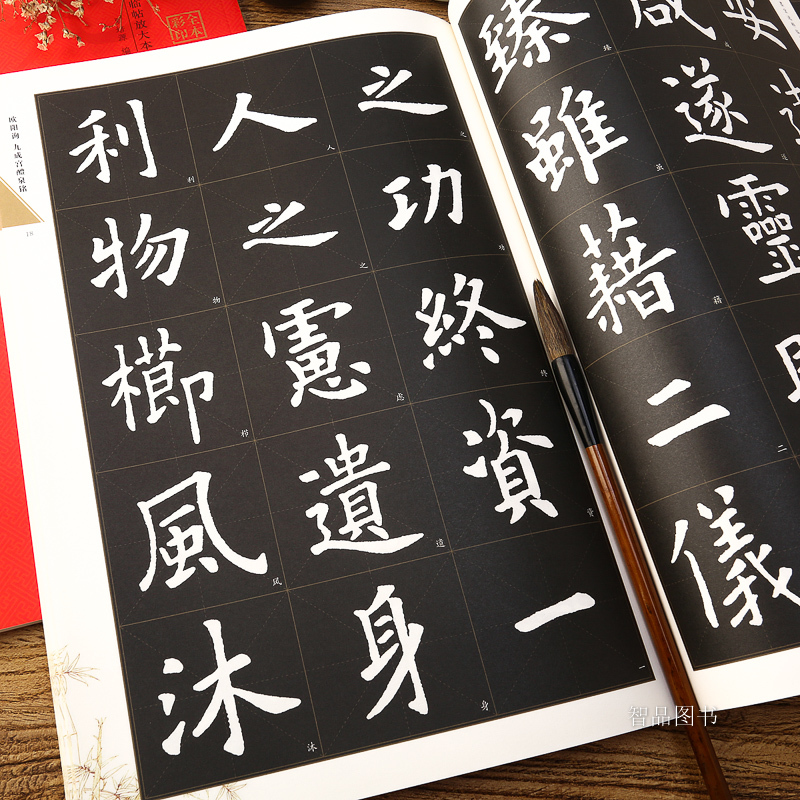 安
咸遂靈
臻雖藉二儀
臻虽藉二
之功終資一
之功终资一
人之慮遺身
人之虑遗身
利物櫛風沐
利物栉风沐
欧阳询 九成宫醴泉铭
18
全本彩印
临帖放大本
智品图书